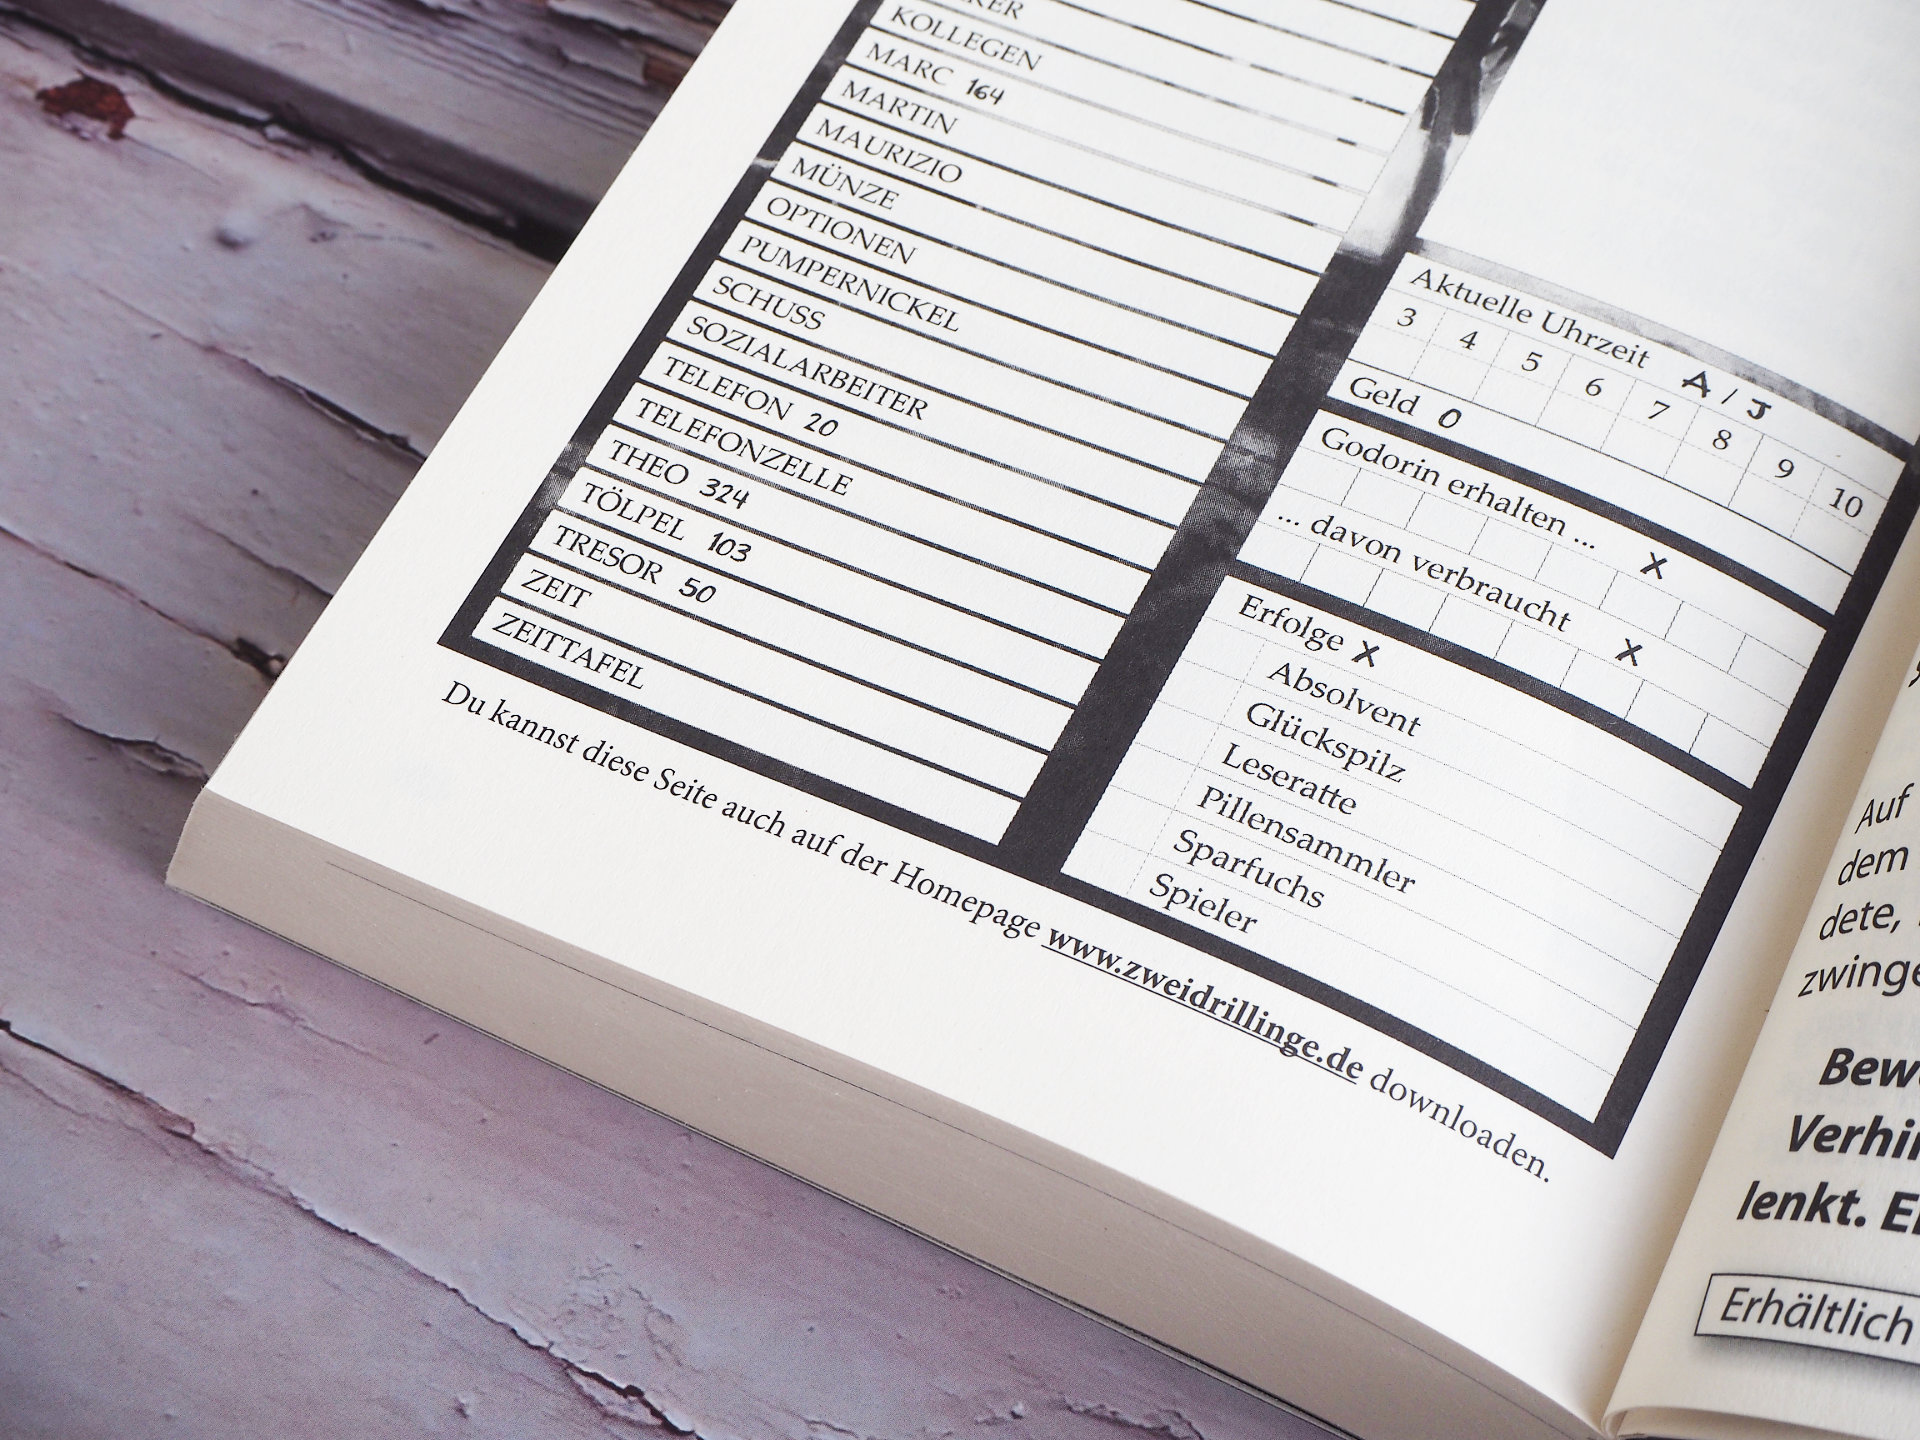 KOLLEGEN
MARC 164
MARTIN
MAURIZIO
MÜNZE
OPTIONEN
PUMPERNICKEL
SCHUSS
SOZIALARBEITER
TELEFON 20
TELEFONZELLE
THEO 324
TÖLPEL 103
TRESOR 50
ZEIT
ZEITTAFEL
Aktuelle Uhrzeit A / J
3 4 5 6 7 8 9 10
Geld 0
Godorin erhalten ... X
... davon verbraucht X
Erfolge X
Absolvent
Glückspilz
Leseratte
Pillensammler
Sparfuchs
Spieler
Du kannst diese Seite auch auf der Homepage www.zweidrillinge.de downloaden.
Auf
dem
dete,
lenkt.
Erhältlich